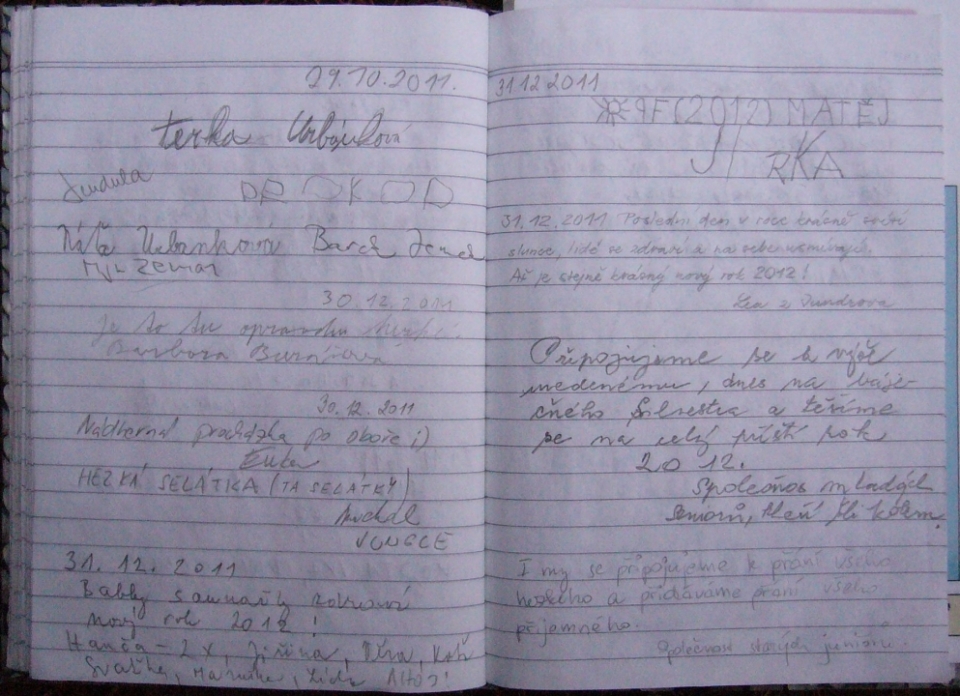 29.10.2011.
terka Urbánková
Jindula
Náťa Urbánková Bára
30.12.2011
Je to tu opravdu
Barbora
30.12.2011
Nádherná procházka po oboře ;)
HEZKÁ SELÁTKA (TA SELÁTKA)
Michal
31. 12. 2011
Babky
nový rok 2012!
Hanča - 2x, Jiřina, Věra,
Maruška, Lída AHOJ!
31.12 2011
PF (2012) MATĚJ
JI RKA
31.12.2011 Poslední den v roce krásně svítí
slunce, lidé ve zdraví a na sebe usměvaví.
Ať je stejně krásný nový rok 2012!
Lea z Jundrova
Připojujeme se k výše
uvedenému, dnes na báje-
čného Silvestra a těšíme
se na celý příští rok
2012.
Společnos mladých
seniorů, kteří šli kolem.
I my se připojujeme k přání všeho
hezkého a přidáváme přání všeho
příjemného.
Společnost starých juniorů